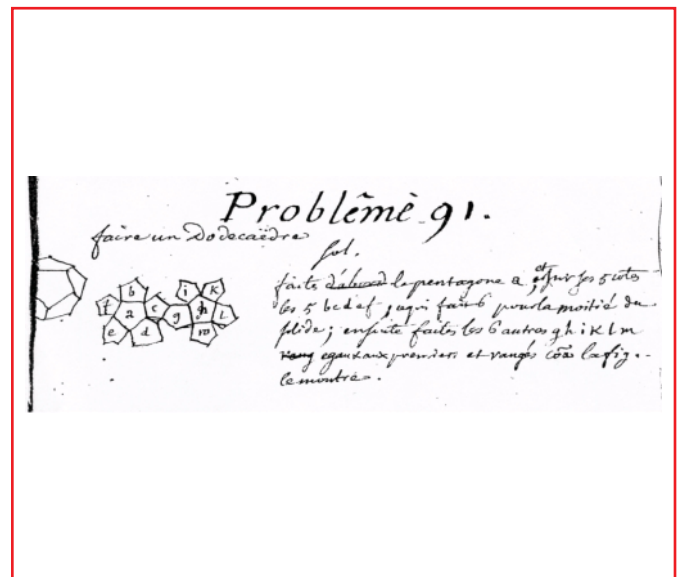 Problême 91.
faire un Dodecaëdre
Sol.
faits d'abord le pentagone a, et sur ses 5 cotes
les 5 bcdef, ce qui fait 6 pour la moitié du
solide; ensuite faites les 6 autres g h i K l m
egaux aux premiers et rangés coe la fig.
le montre.
b
f
a
c
e
d
i
K
g
h
L
m